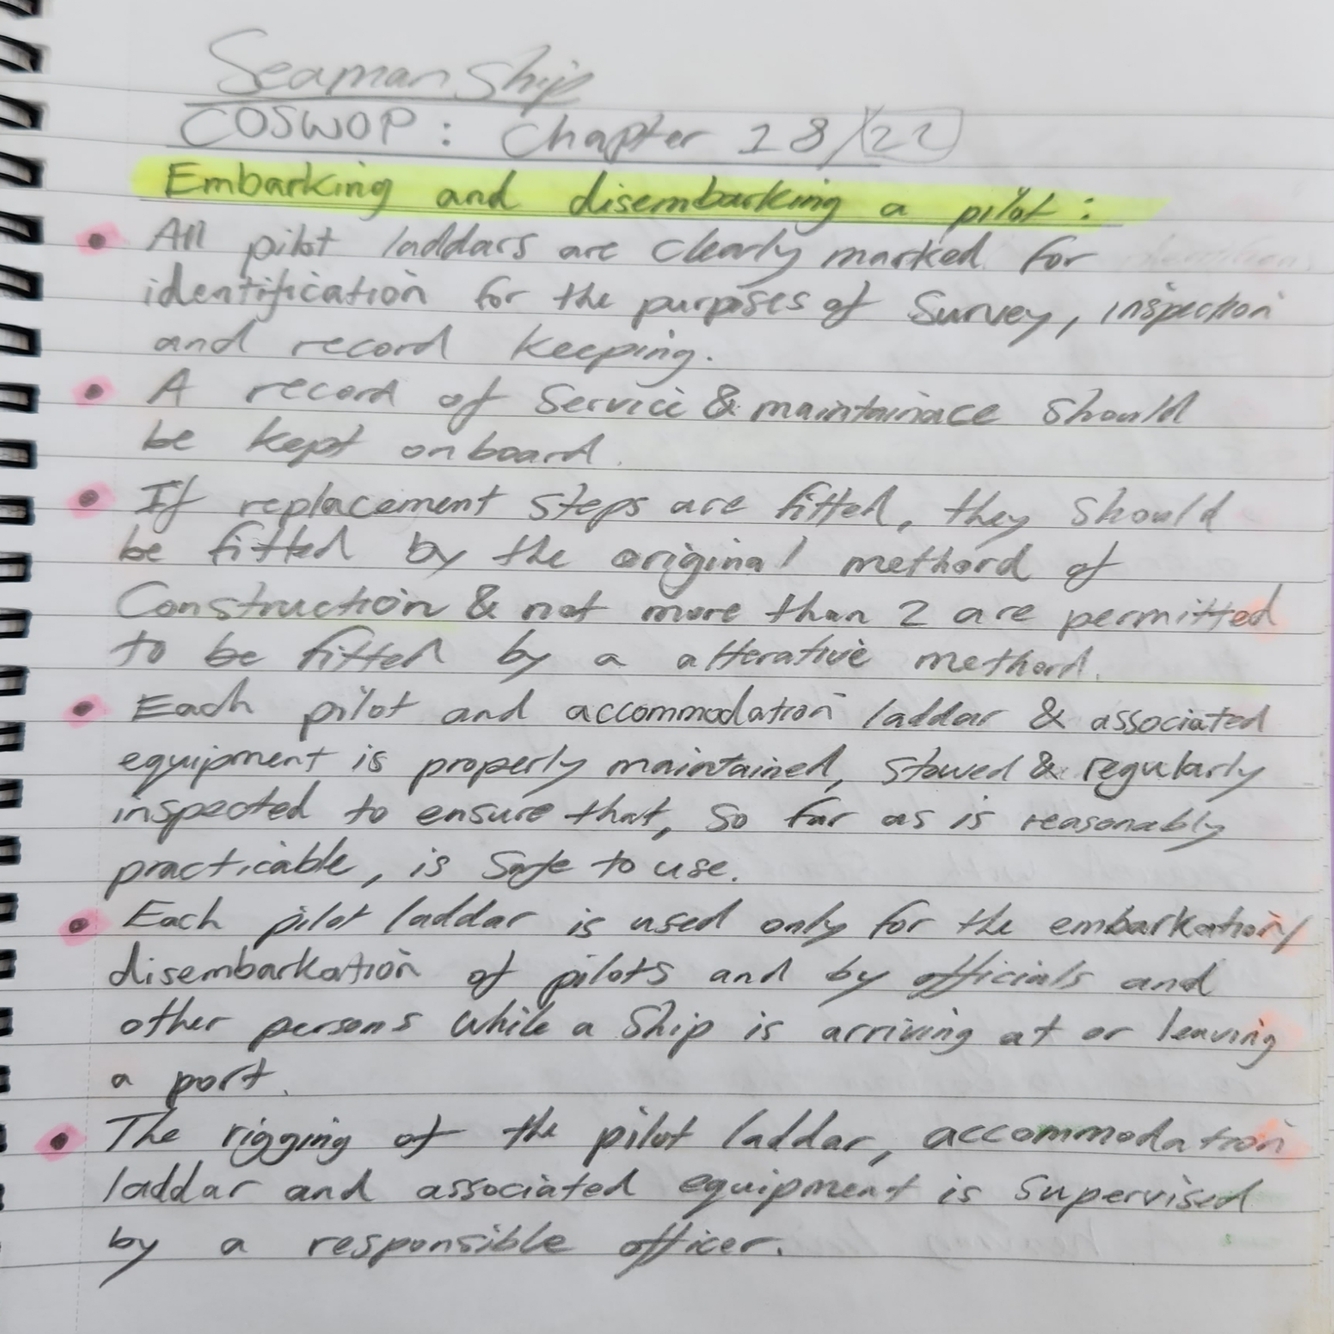 Seaman Ship
COSWOP : Chapter 18/22
Embarking and disembarking a pilot :
All pilot laddars are clearly marked for
identification for the purposes of Survey, inspection
and record keeping.
A record of Service & maintainace should
be kept onboard.
If replacement steps are fitted, they should
be fitted by the original methord of
Construction & not more than 2 are permitted
to be fitted by a alterative methord.
Each pilot and accommodation laddar & associated
equipment is properly maintained, stowed & regularly
inspected to ensure that, so far as is reasonably
practicable, is safe to use.
Each pilot laddar is used only for the embarkation/
disembarkation of pilots and by officials and
other persons while a ship is arriving at or leaving
a port.
The rigging of the pilot laddar, accommodation
laddar and associated equipment is supervised
by a responsible officer.